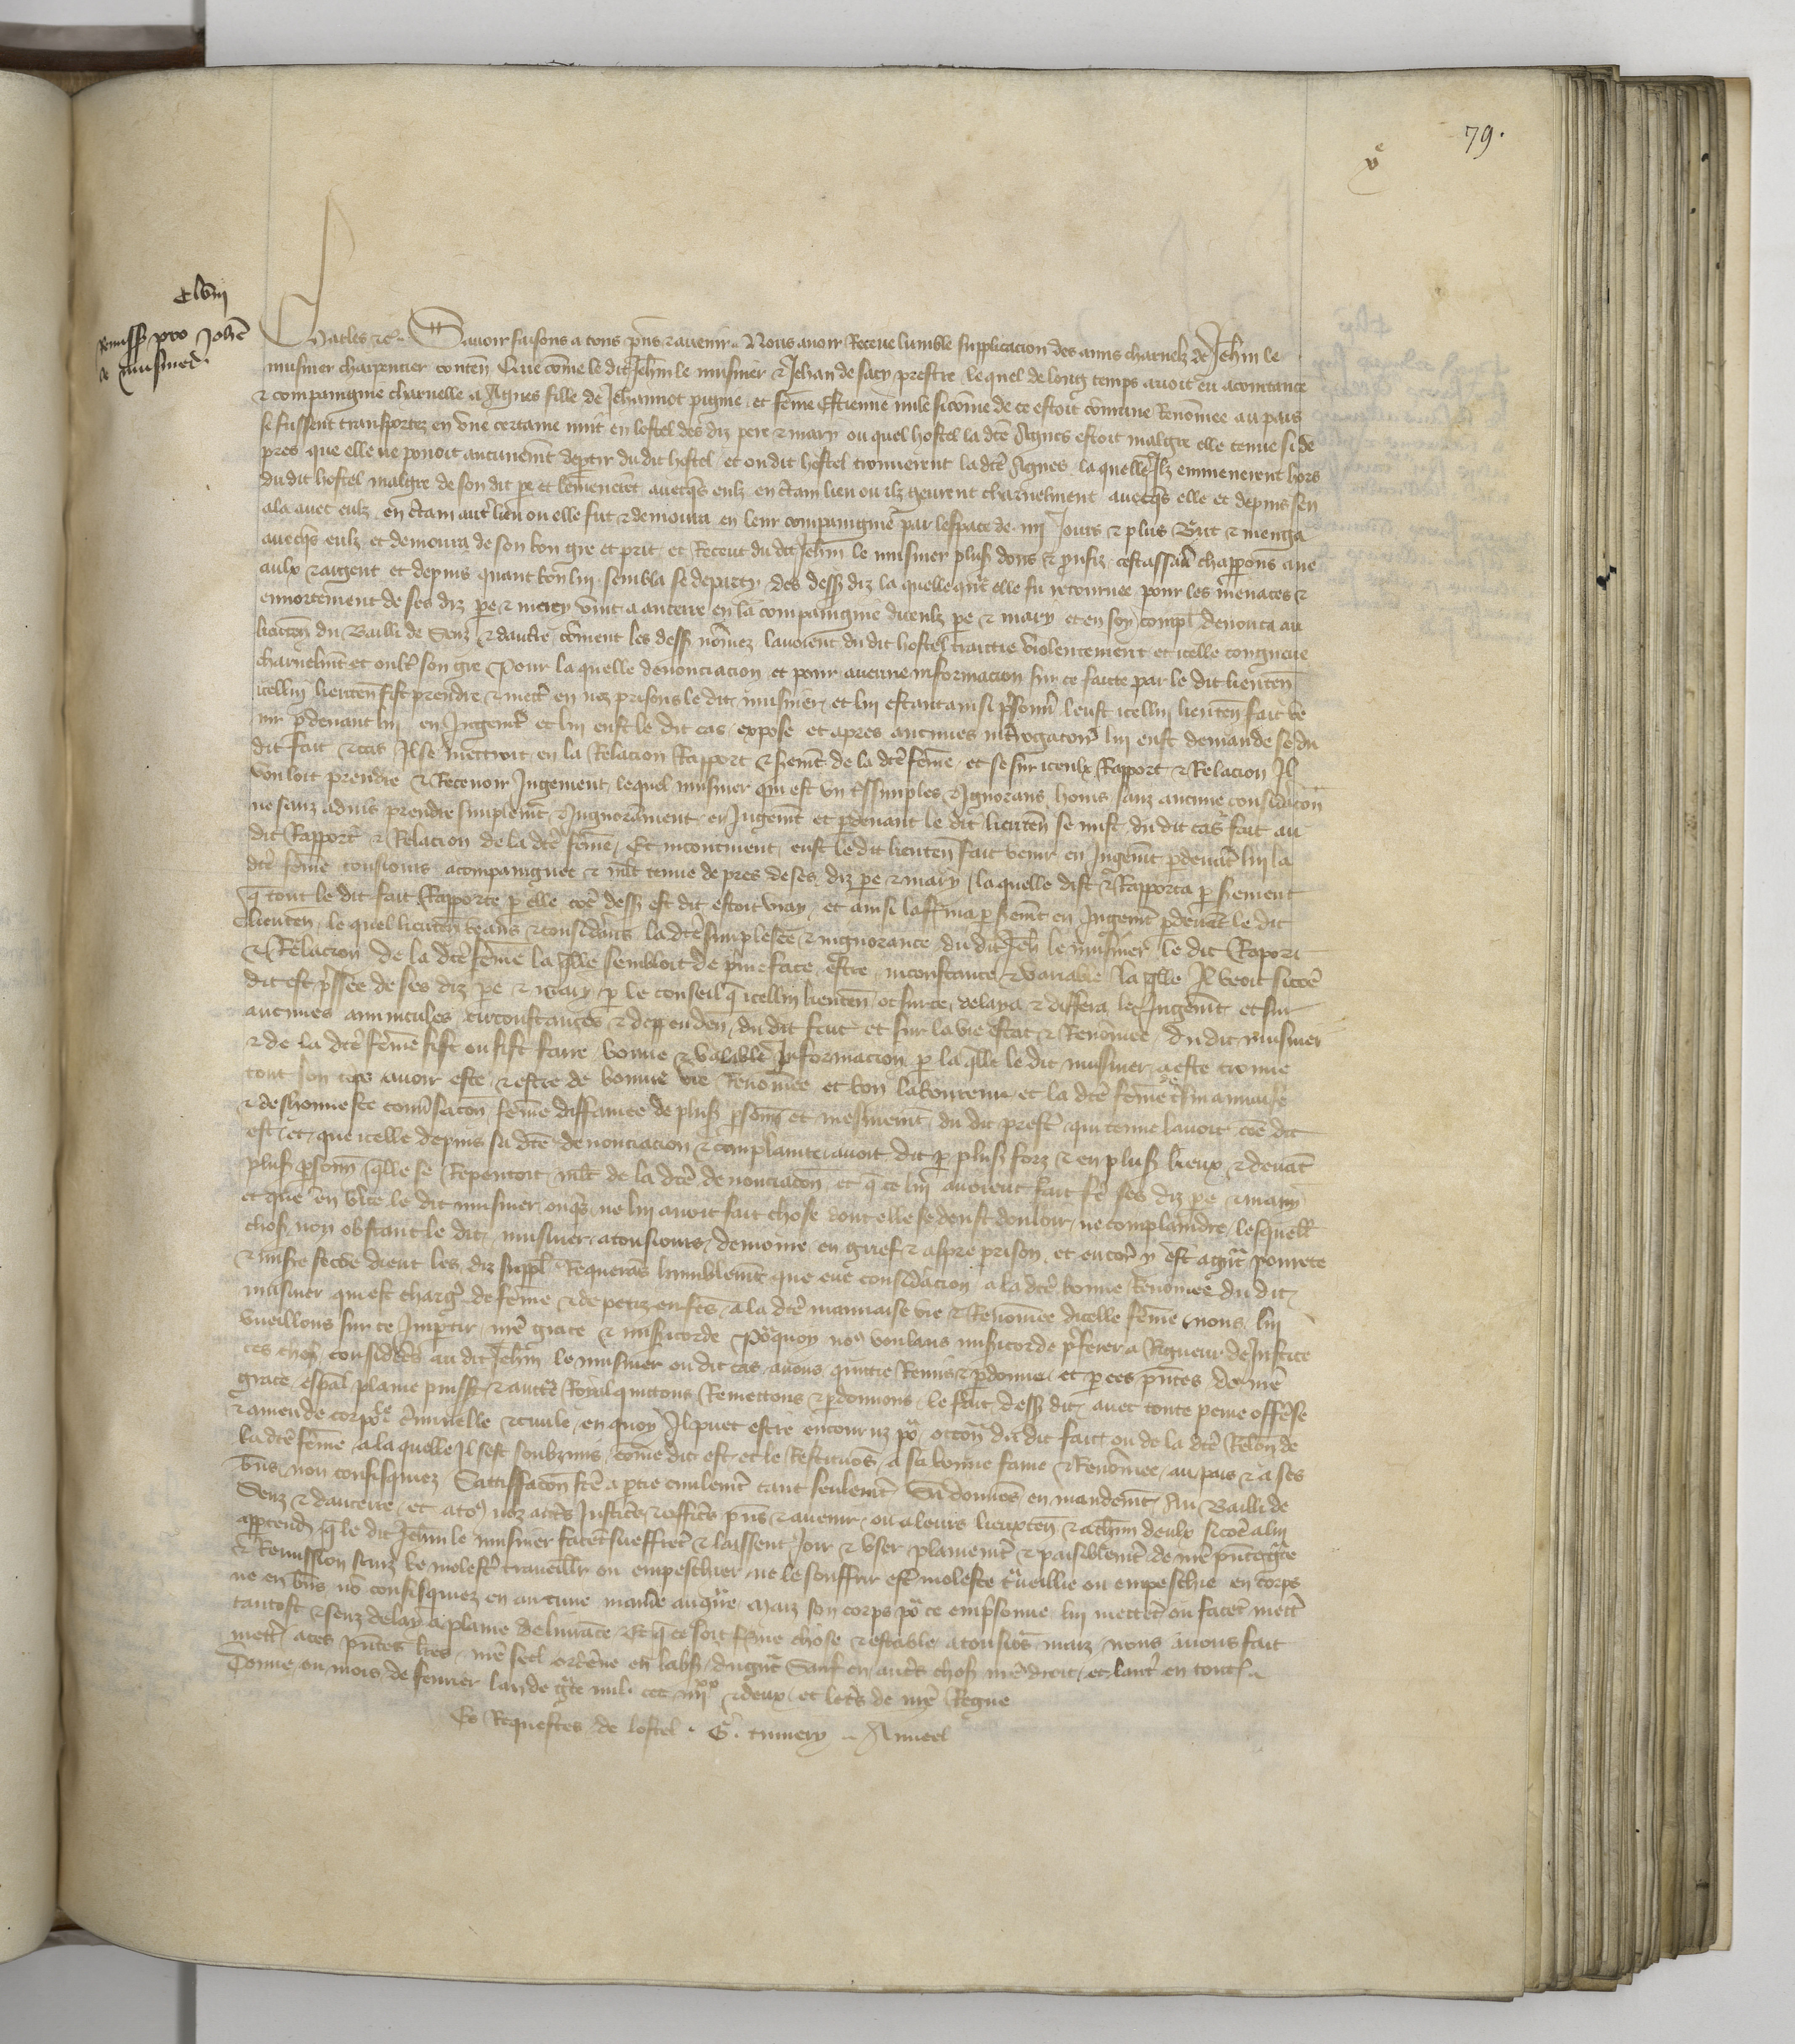 79.
v^e
clviii
Remiss pro Joh̄e
le musnier
Charles etc. Savoir faisons a tous p̄ns et avenir. Nous avoir Receue lumble supplicacion des amis charnelz de Jeh̄an le
musnier charpentier conten̄ Que cōme le dit Jeh̄an le musnier et Jehan de sacy prestre lequel de long temps avoit eu acointance
et compaingnie charnelle a Agnes fille de Jehannot et fēme Estienne sicōme de ce estoit cōmune Renōmee au pais
se fussent transportez en une certaine nuit en lostel des diz pere et mary ou quel hostel la dc̄e Agnes estoit malgre elle tenue si de
pres que elle ne povoit aucunemt̄ deptir du dit hostel et ou dit hostel trouverent la dc̄e Agnes la quelle Ilz emmenerent hors
du dit hostel malgre de son dit pe et lemmeneret̄ avecqs eulx en c̄tain lieu ou ilz geurent charnelment avecqs elle et depuis sen
ala avec eulx en c̄tain aut̄ lieu ou elle fut et demoura en leur compaingnie par lespace de iiij Jours et plus But et menga
avecqs eulx et demoura de son bon gre et prit et Receut du dit Jeh̄an le musnier plus̄ dons et proufiz cestassavr̄ chapperons
aulx et argent et depuis quant bon lui sembla se departy des dess̄ diz la quelle elle fu retournee pour les menaces et
ennortement de ses diz pe et mary vint a aucerre en la compaingnie diceulx pe et mary et en soy compl̄ denonca au
lieuten̄ du Bailli de Senz et daucerre cōment les dess̄ nōmez lavoient du dit hostel traictie violentement et icelle congneue
charnelmt̄ et oult̄ son gre Pour la quelle denonciacion et pour aucune informacion sur ce faicte par le dit lieuten̄
icellui lieuten̄ fist prendre et mett̄ en noz prisons le dit musnier et lui estant ainsi p̄sonn̄ leust icellui lieuten̄ fait ve
nir p̄devant lui en Jugemt̄ et lui eust le dit cas expose et apres aucunes int̄rogacon̄s lui eust demande se du
dit fait et cas Il se mettroit en la Relacion Rapport et s̄remt̄ de la dc̄e fēme et se sur iceulx Rapport et Relacion Il
vouloit prendre et Recevoir Jugement lequel musnier qui est un simples et Ignorans homs sanz aucune consid̄acon̄
ne sanz advis prendre simplemt̄ et Ingnorāment en Jugemt̄ et p̄devant le dit lieuten̄ se mist du dit cas et fait au
dit Rapport et Relacion de la dc̄e fēme Et incontinent eust le dit lieuten̄ fait venir en Jugemt̄ p̄devāt lui la
dc̄e fēme tousiours acompaingnee et ml̄t tenue de pres de ses diz pe et mary laquelle dist et Rapporta p s̄rement
q̄ tout le dit fait Rapporte p elle cōe dess̄ est dit estoit vray et ainsi lafferma p s̄remt̄ en Jugemt̄ p̄devāt le dit
lieuten̄ le quel lieuten̄ veans et consid̄ans la dc̄e simplesce et ingnorance du dit Jeh̄ le musnier le dit Raport
et Relacion de la dc̄e fēme la q̄lle sembloit de p̄me face estre inconstante et variable la q̄lle Il veoit sicōe
dit est p̄ssee de ses diz pe et mary p le conseil q̄ icellui lieuten̄ ot sur ce delaya et differa le Jugemt̄ et sur
aucunes circonstances et deppenden̄ du dit fait et sur la vie Estat et Renōmee du dit musnier
et de la dc̄e fēme fist ou fist faire bonne et valable Informacion p la q̄lle le dit musnier a este trouve
tout son tēps avoir este et estre de bonne vie Renōmee et bon laboureur et la dc̄e fēme de tresmauvaise
et deshonneste convsacon̄ fēme diffamee de plus̄ p̄sonn̄ et mesmemt̄ du dit prest̄ qui tenue lavoit cōe dit
est et que icelle depuis sa dc̄e denonciacion et complainte avoit dit p plus̄ foiz et en plus̄ lieux et devāt
plus̄ p̄sonn̄ q̄lle se Repentoit ml̄t de la dc̄e denonciacon̄ et q̄ ce lui avoient fait fe ses diz pe et mary
et que en v̄ite le dit musnier onqs ne lui avoit fait chose dont elle se deust douloir ne complaindre lesquell̄
chos̄ non obstant le dit musnier a tousiours demoure en grief et aspre prison et encor̄ y est a gn̄t povrete
et misere sicōe dient les diz suppl̄ Requerās humblemt̄ que eue consid̄acion a la dc̄e bonne Renōmee du dit
musnier qui est charge de fēme et de petiz enfēs a la dc̄e mauvaise vie et Renōmee dicelle fēme nous lui
vueillons sur ce Impartir nr̄e grace et mis̄icorde Pōquoy noꝰ voulans mis̄icorde p̄ferer a Rigueur de Justice
ces chos̄ consid̄ees au dit Jeh̄an le musnier ou dit cas avons quittie Remis et p̄donne et p ces p̄ntes de nr̄e
grace esp̄al plaine puiss̄ et auct̄e Royal quittons Remettons et p̄donnons le fait dess̄ dit avec toute peine offense
et amende corpor̄le c̄iminelle et civile en quoy Il puet estre encouruz pō occon̄ du dit fait ou de la dc̄e Relon̄ de
la dc̄e fēme a la quelle Il sest soubzmis cōme dit est et le Restituōs a sa bonne fame et Renōmee au pais et a ses
biēs non confisquiez Sattisfacon̄ fc̄e a p̄tie civilemt̄ tant seulemt̄ Si donnōs en mandemt̄ Au Bailli de
Senz et daucerre et a toꝰ noz aut̄s Justic̄es et offic̄es p̄ns et avenir ou a leurs lieuxten̄ et a ch̄un deulx sicōe a lui
appartend̄ q̄ le dit Jeh̄an le musnier facent sueffrent et laissent Joir et user plainemt̄ et paisiblemt̄ de nr̄e p̄nte grace
et Remission sanz le molest̄ traveill̄ ou empeschier ne le souffrir est̄ moleste t̄veillie ou empeschie en corps
ne en biēs nō confisquiez en aucune manīe Maiz son corps pō ce emp̄sonne lui mettēt ou facēt mett̄
tantost et senz delay a plaine delivrāce Et q̄ ce soit ferme chose et estable a tousiōs maiz nous avons fait
mett̄ a ces p̄ntes lr̄es nr̄e seel ordene en labs̄ du gn̄t Sauf en aut̄s chos̄ nr̄e droit et lautr̄ en toutes
Donne ou mois de fevrier lan de ḡce mil ccc iiij^xx et deux et le t̄s de nr̄e Regne
Es Requestes de lostel . G. tumery .. Anucel